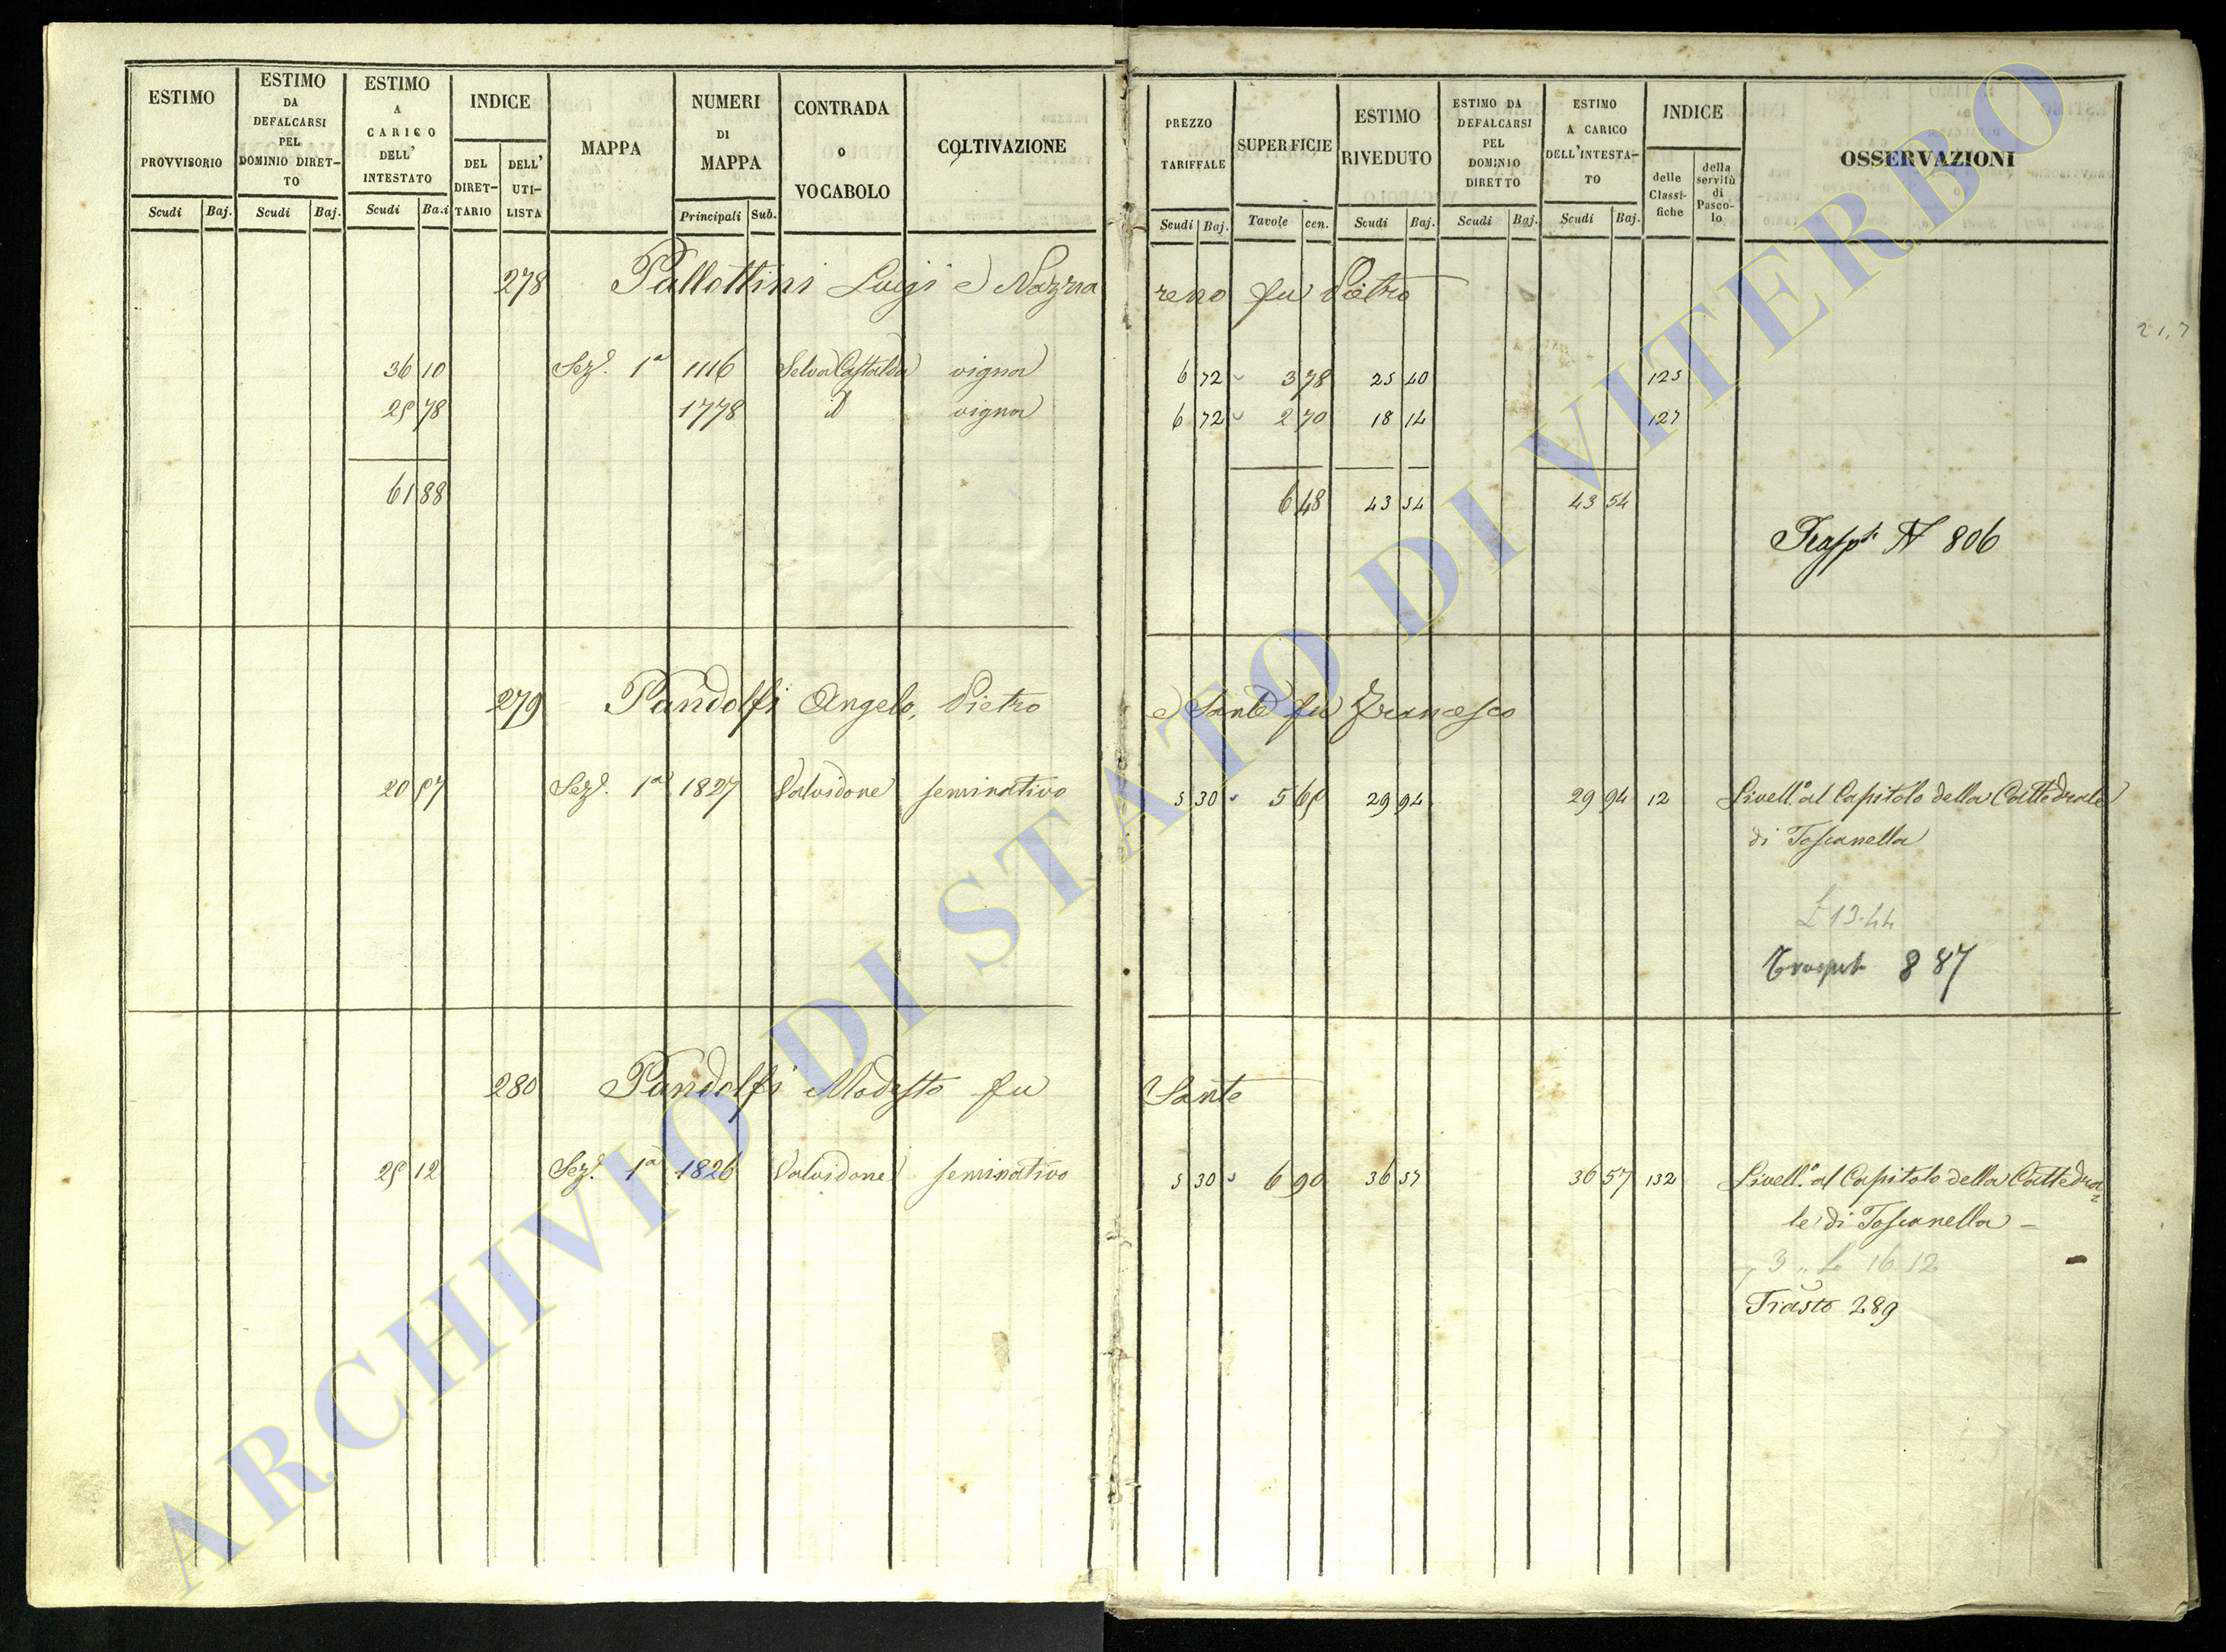 ESTIMO PROVVISORIO
Scudi Baj.
ESTIMO DA DEFALCARSI PEL DOMINIO DIRET-TO
Scudi Baj.
ESTIMO A CARICO DELL' INTESTATO
Scudi Ba.i
INDICE
DEL DIRET-TARIO
DELL' UTI-LISTA
MAPPA
NUMERI DI MAPPA
Principali Sub.
CONTRADA O VOCABOLO
COLTIVAZIONE
PREZZO TARIFFALE
Scudi Baj.
SUPERFICIE
Tavole cen.
ESTIMO RIVEDUTO
Scudi Baj.
ESTIMO DA DEFALCARSI PEL DOMINIO DIRETTO
Scudi Baj.
ESTIMO A CARICO DELL'INTESTA-TO
Scudi Baj.
INDICE
delle Classi-fiche
della servitù di Pasco-lo
OSSERVAZIONI
278 Pallottini Luigi e Nazza reno fu Pietro
36 10 Sez. 1a 1116 Selva Castalda vigna 6 72 3 78 25 40 125
25 78 1778 id vigna 6 72 2 70 18 14 127
61 88 6 48 43 54 43 54
Trasp. N 806
279 Pandolfi Angelo, Pietro e Sante fu Francesco
20 57 Sez. 1a 1827 Valvidone seminativo 5 30 5 65 29 94 29 94 12 Livell.o al Capitolo della Cattedrale
di Toscanella
£ 13.44
Trasport 887
280 Pandolfi Modesto fu Sante
25 12 Sez. 1a 1826 Valvidone seminativo 5 30 6 90 36 57 36 57 132 Livell.o al Capitolo della Cattedra=
le di Toscanella -
3 16 12
Trasto 289
21,7
ARCHIVIO DI STATO DI VITERBO